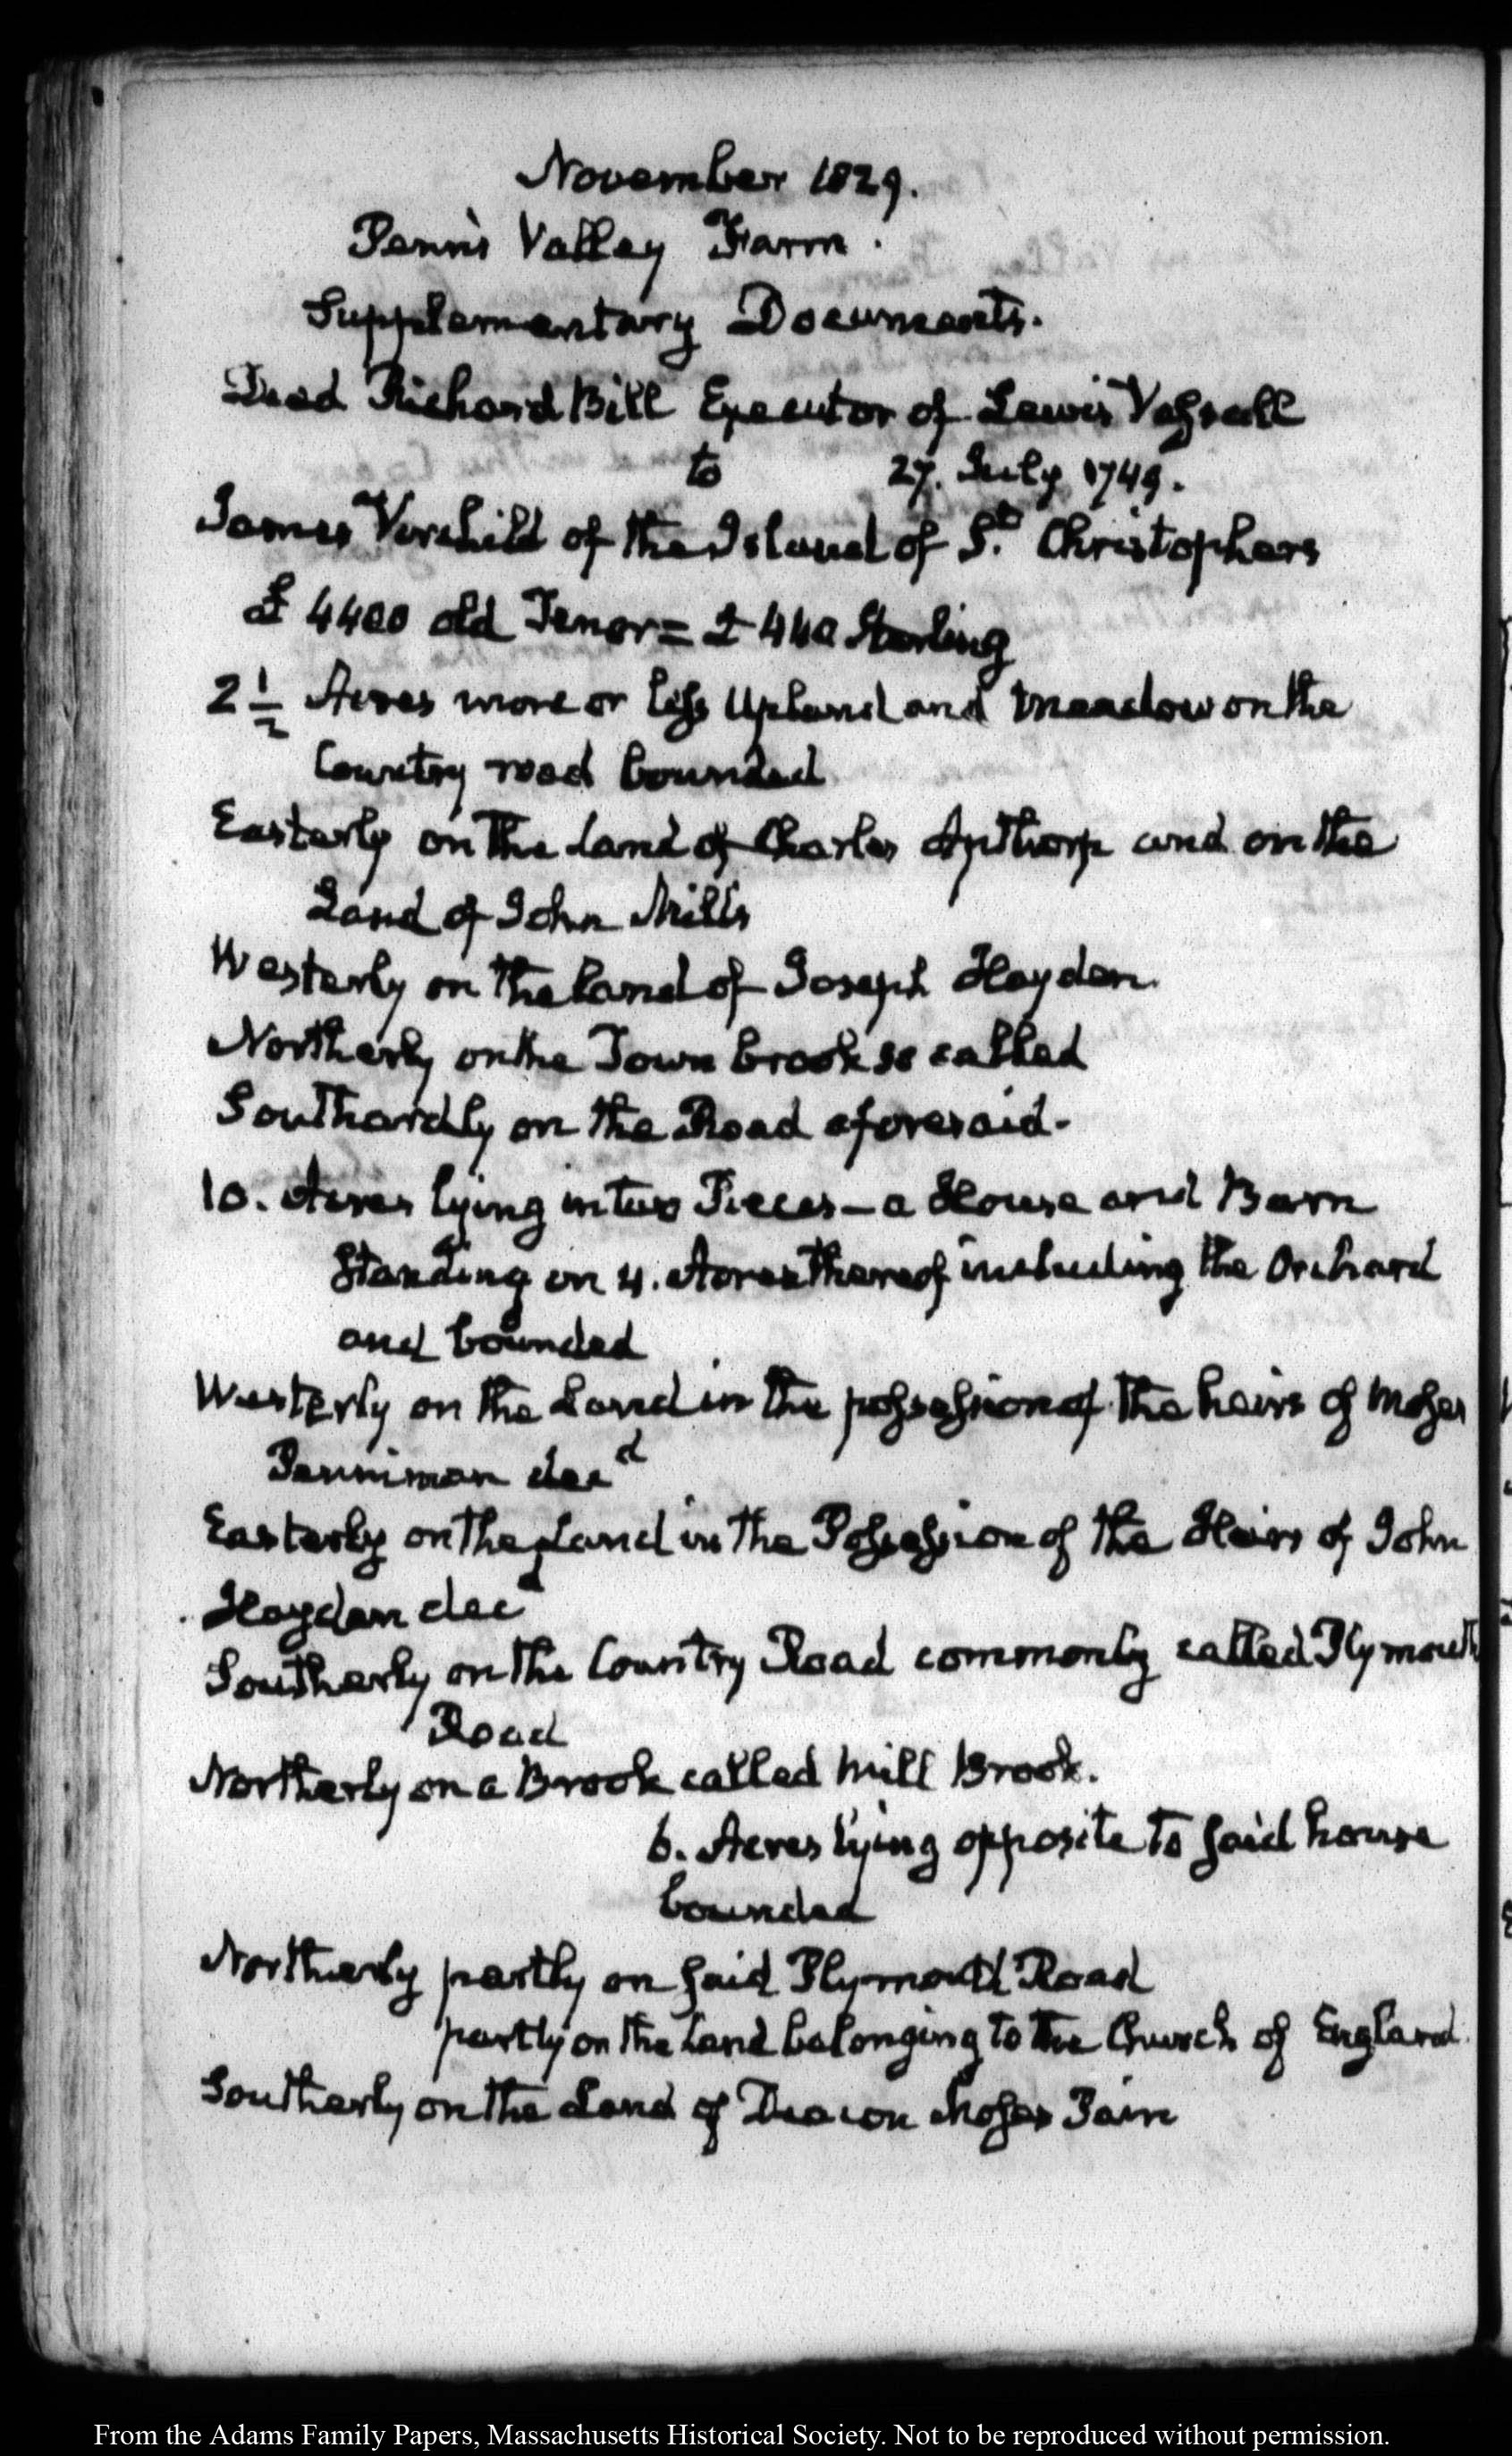 November 1829.
Penn's Valley Farm.
Supplementary Documents.
Deed Richard Bill Executor of Lewis Vassall
to 27. July 1749.
James Verchild of the Island of St. Christophers
£ 4400 old Tenor = £ 440 Sterling
2 1/2 Acres more or less Upland and Meadow on the
Country road bounded
Easterly on the Land of Charles Apthorp and on the
Land of John Mills
Westerly on the Land of Joseph Hayden.
Northerly on the Town brook so called
Southardly on the Road aforesaid.
10. Acres lying in two Pieces—a House and Barn
Standing on 4. Acres thereof including the Orchard
and bounded
Westerly on the Land in the possession of the heirs of Moses
Penniman decd
Easterly on the Land in the Possession of the Heirs of John
Hayden decd
Southerly on the Country Road commonly called Plymouth
Road
Northerly on a Brook called Mill Brook.
6. Acres lying opposite to said house
bounded
Northerly partly on said Plymouth Road
partly on the Land belonging to the Church of England.
Southerly on the Land of Deacon Moses Pain
From the Adams Family Papers, Massachusetts Historical Society. Not to be reproduced without permission.